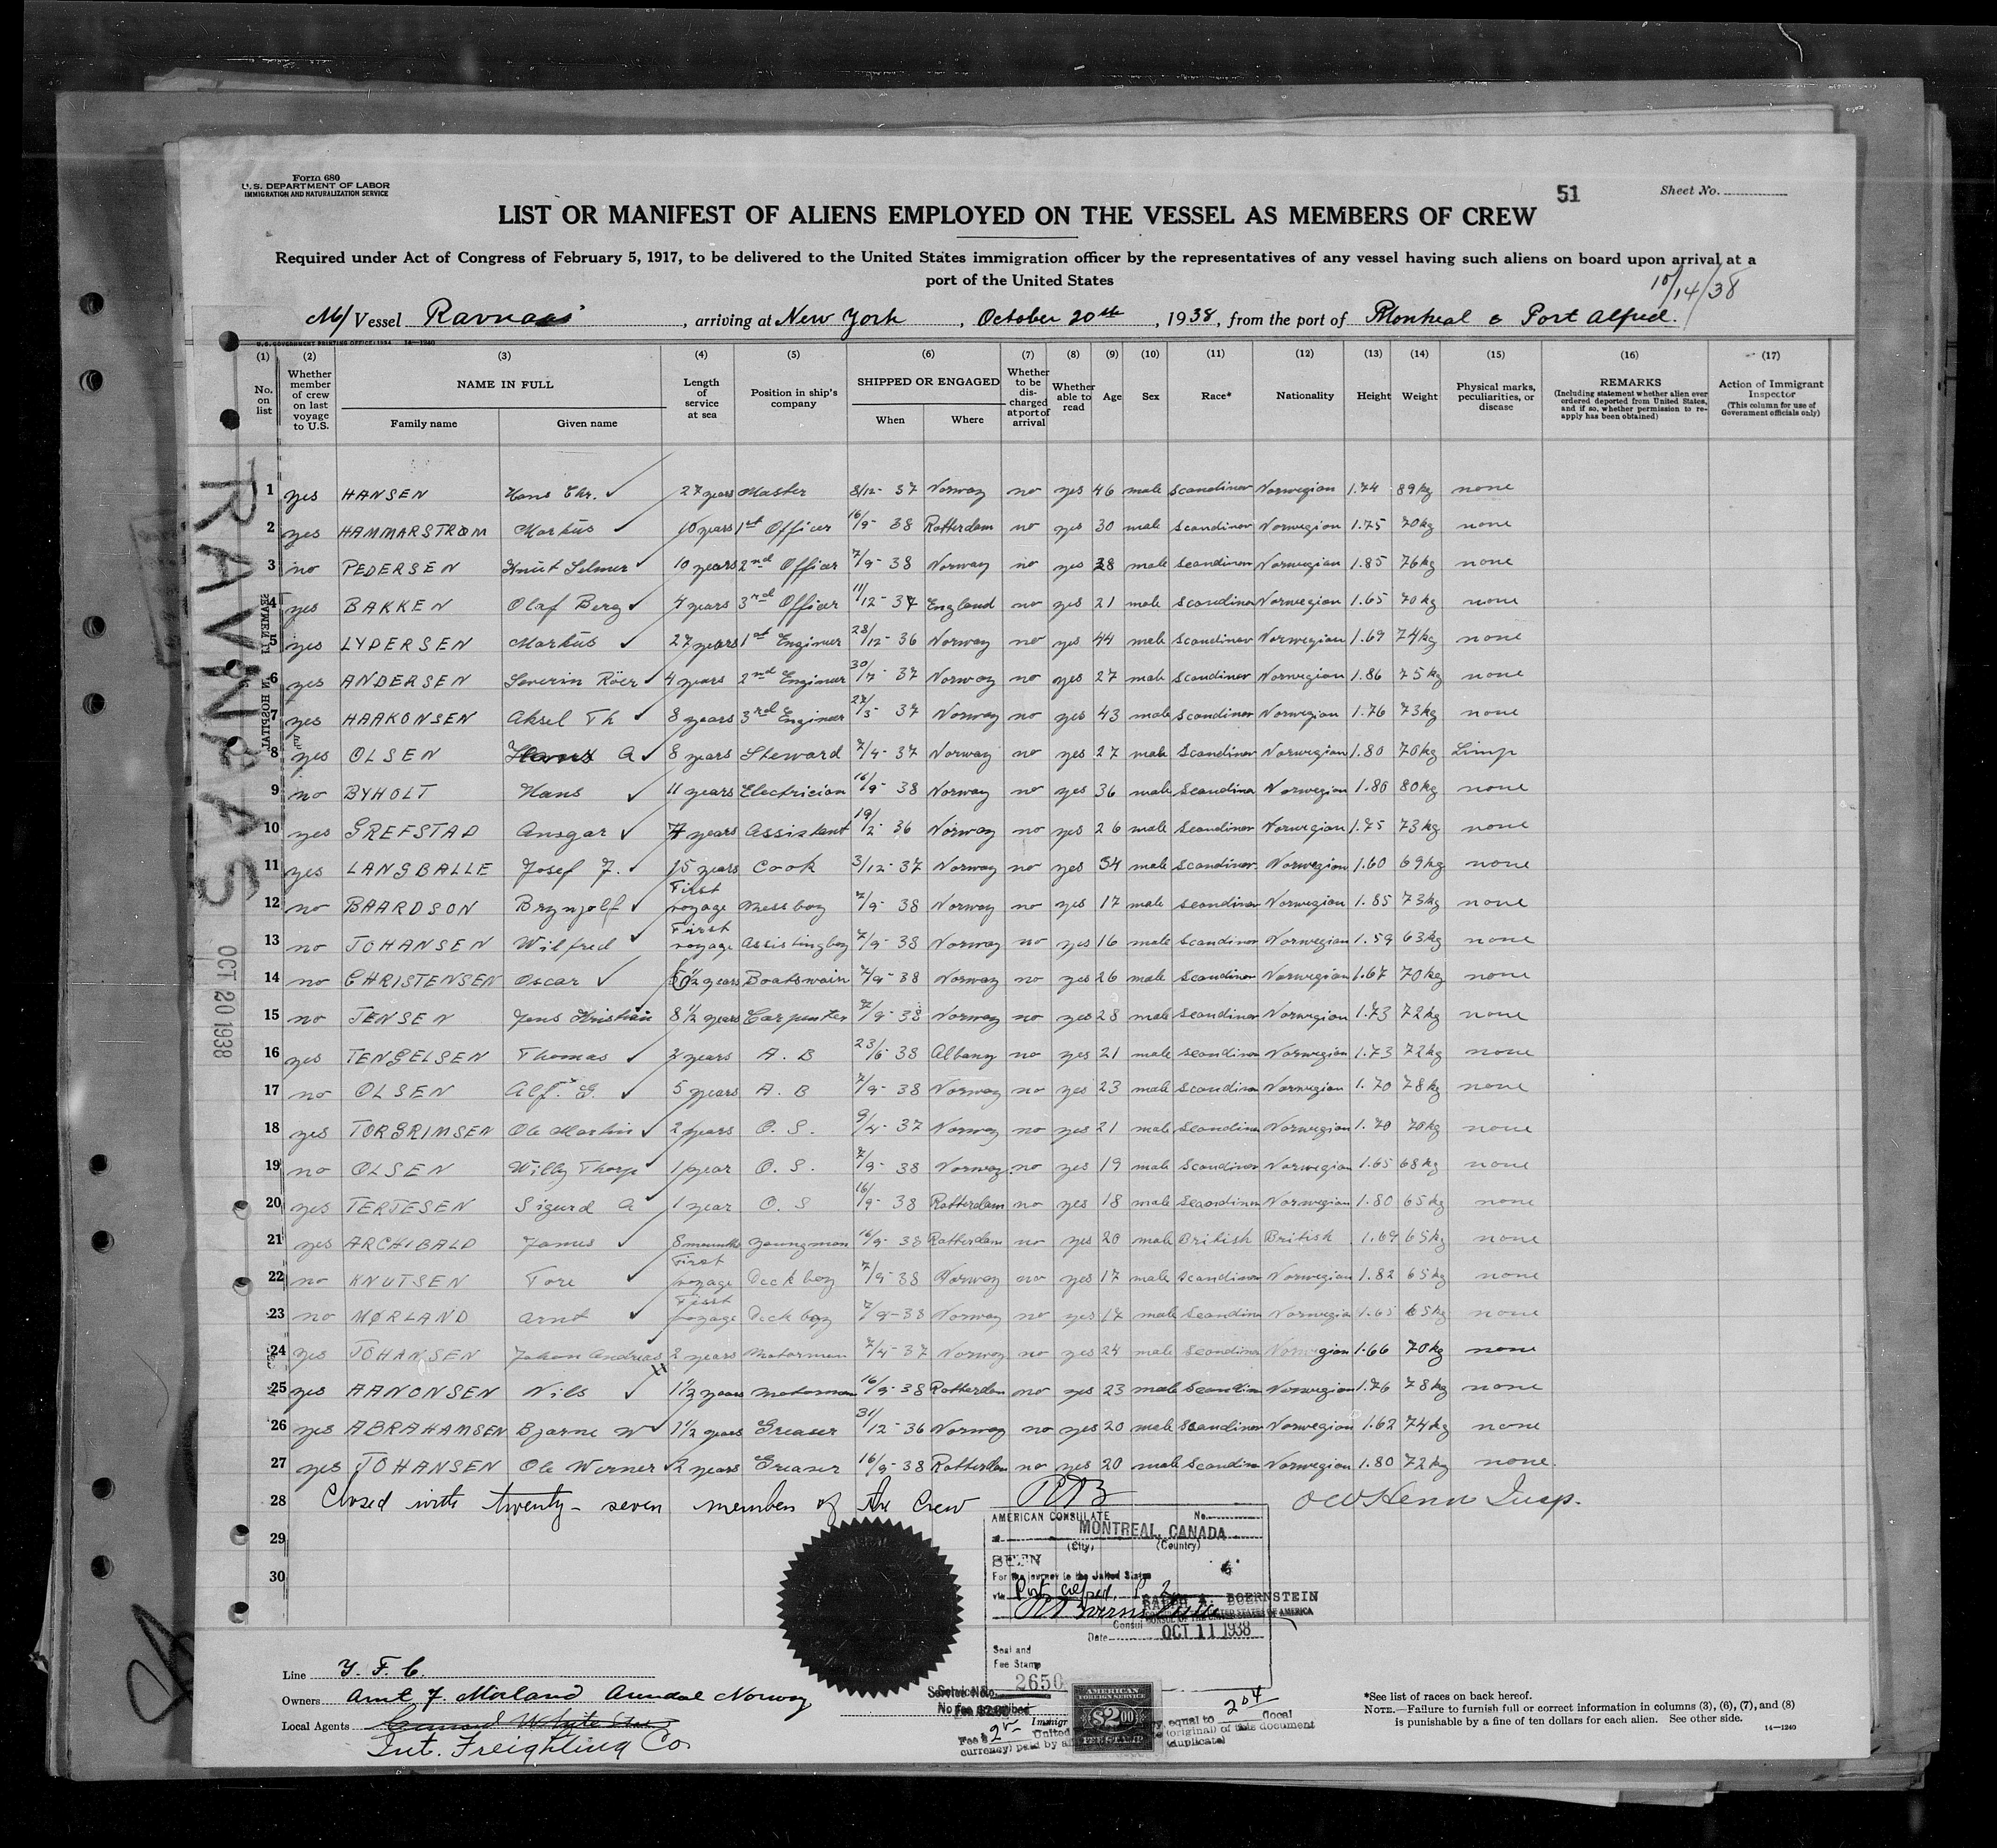 Form 680
U. S. DEPARTMENT OF LABOR
IMMIGRATION AND NATURALIZATION SERVICE
51
Sheet No.
LIST OR MANIFEST OF ALIENS EMPLOYED ON THE VESSEL AS MEMBERS OF CREW
Required under Act of Congress of February 5, 1917, to be delivered to the United States immigration officer by the representatives of any vessel having such aliens on board upon arrival at a
port of the United States
10/14/38
M/ Vessel Ravnaas , arriving at New York , October 20th , 1938, from the port of Montreal & Port Alfred.
U. S. GOVERNMENT PRINTING OFFICE: 1934 14—1240
(1) (2) (3) (4) (5) (6) (7) (8) (9) (10) (11) (12) (13) (14) (15) (16) (17)
No. on list
Whether member of crew on last voyage to U.S.
NAME IN FULL
Family name
Given name
Length of service at sea
Position in ship's company
SHIPPED OR ENGAGED
When
Where
Whether to be discharged at port of arrival
Whether able to read
Age
Sex
Race*
Nationality
Height
Weight
Physical marks, peculiarities, or disease
REMARKS
(Including statement whether alien ever ordered deported from United States, and if so, whether permission to re-apply has been obtained)
Action of Immigrant Inspector
(This column for use of Government officials only)
RAVNAAS
OCT 20 1938
1 yes HANSEN Hans Chr. 27 years Master 8/12- 37 Norway no yes 46 male Scandinav Norwegian 1.74 89kg none
2 yes HAMMARSTRØM Markus 10 years 1st Officer 16/9- 38 Rotterdam no yes 30 male Scandinav Norwegian 1.75 70kg none
3 no PEDERSEN Knut Selmer 10 years 2nd Officer 7/9- 38 Norway no yes 28 male Scandinav Norwegian 1.85 76kg none
4 yes BAKKEN Olaf Berg 4 years 3rd Officer 11/12- 37 England no yes 21 male Scandinav Norwegian 1.65 70kg none
5 yes LYDERSEN Markus 27 years 1st Engineer 28/12- 36 Norway no yes 44 male Scandinav Norwegian 1.69 74kg none
6 yes ANDERSEN Severin Röer 4 years 2nd Engineer 30/7- 37 Norway no yes 27 male Scandinav Norwegian 1.86 75kg none
7 yes HAAKONSEN Aksel Th 8 years 3rd Engineer 27/5- 37 Norway no yes 43 male Scandinav Norwegian 1.76 73kg none
8 yes OLSEN A 8 years Steward 7/4- 37 Norway no yes 27 male Scandinav Norwegian 1.80 70kg Limp
9 no BYHOLT Hans 11 years Electrician 16/9- 38 Norway no yes 36 male Scandinav Norwegian 1.80 80kg none
10 yes GREFSTAD Ansgar 7 years Assistant 19/2- 36 Norway no yes 26 male Scandinav Norwegian 1.75 73kg none
11 yes LANGBALLE Josef F. 15 years Cook 3/12- 37 Norway no yes 34 male Scandinav. Norwegian 1.60 69kg none
12 no BAARDSON Brynjolf First voyage Messboy 7/9- 38 Norway no yes 17 male Scandinav Norwegian 1.85 73kg none
13 no JOHANSEN Wilfred First voyage Assistingboy 7/9- 38 Norway no yes 16 male Scandinav Norwegian 1.59 63kg none
14 no CHRISTENSEN Oscar 1/2 years Boatswain 7/9- 38 Norway no yes 26 male Scandinav Norwegian 1.67 70kg none
15 no JENSEN Jens Kristian 8 1/2 years Carpenter 7/9- 38 Norway no yes 28 male Scandinav Norwegian 1.73 72kg none
16 yes TENGELSEN Thomas years A. B 23/6- 38 Albany no yes 21 male Scandinav Norwegian 1.73 72kg none
17 no OLSEN Alf. G. 5 years A. B 7/9- 38 Norway no yes 23 male Scandinav Norwegian 1.70 78kg none
18 yes TORGRIMSEN Ole Martin 2 years O. S. 9/4- 37 Norway no yes 21 male Scandinav Norwegian 1.70 70kg none
19 no OLSEN Willy Thorp 1 year O. S. 7/9- 38 Norway no yes 19 male Scandinav Norwegian 1.65 68kg none
20 yes TERJESEN Sigurd A 1 year O. S 16/9- 38 Rotterdam no yes 18 male Scandinav Norwegian 1.80 65kg none
21 yes ARCHIBALD James 8 mounths Youngman 16/9- 38 Rotterdam no yes 20 male British British 1.69 65kg none
22 no KNUTSEN Tore First voyage Deckboy 7/9- 38 Norway no yes 17 male Scandinav Norwegian 1.82 65kg none
23 no MØRLAND Arnt First voyage Deckboy 7/9- 38 Norway no yes 17 male Scandina Norwegian 1.65 65kg none
24 yes JOHANSEN Johan Andreas 2 years Motorman 7/4- 37 Norway no yes 24 male Scandinav Norwegian 1.66 70kg none
25 yes AANONSEN Nils 1 1/2 years Motorman 16/9- 38 Rotterdam no yes 23 male Scandinav Norwegian 1.76 78kg none
26 yes ABRAHAMSEN Bjarne W 1 1/2 years Greaser 31/12- 36 Norway no yes 20 male Scandinav Norwegian 1.62 74kg none
27 yes JOHANSEN Ole Werner 2 years Greaser 16/9- 38 Rotterdam no yes 20 male Scandinav Norwegian 1.80 72kg none.
28 Closed with twenty-seven members of the Crew
29
30
AMERICAN CONSULATE No.
MONTREAL, CANADA
(City) (Country)
SEEN
For the journey to the United States
via Port Alfred, P. 2
RALPH A. BOERNSTEIN
CONSUL OF THE UNITED STATES OF AMERICA
Consul
Date OCT 11 1938
Seal and
Fee Stamp
2650
Service No.
No fee prescribed
AMERICAN
FOREIGN SERVICE
$2.00
FEE STAMP
Line Y. F. C.
Owners Arnt J. Mörland Arendal Norway
Local Agents
Int. Freighting Co.
*See list of races on back hereof.
NOTE.—Failure to furnish full or correct information in columns (3), (6), (7), and (8)
is punishable by a fine of ten dollars for each alien. See other side.
14—1240